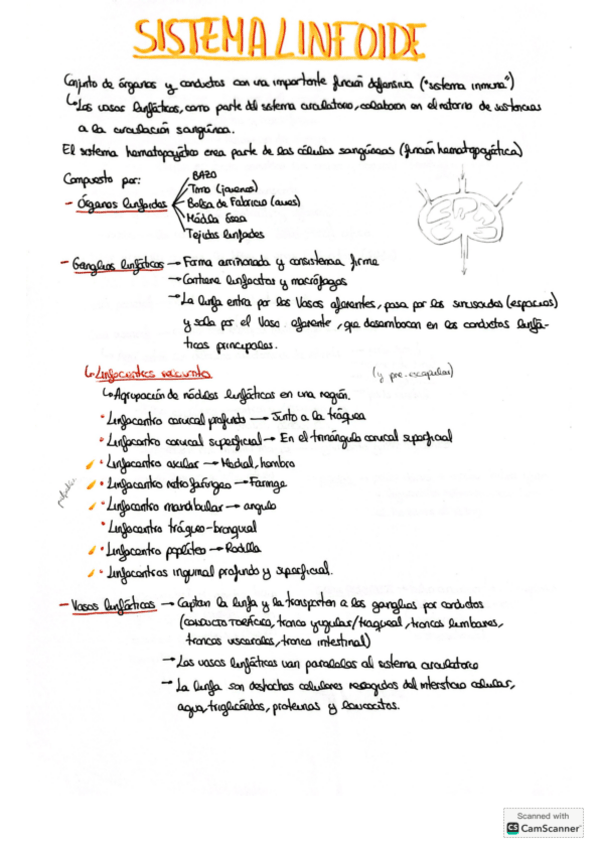 SISTEMA LINFOIDE
Conjunto de órganos y conductos con una importante función defensiva ("sistema inmune")
↳ Los vasos linfáticos, como parte del sistema circulatorio, colaboran en el retorno de sustancias
a la circulación sanguínea.
El sistema hematopoyético crea parte de las células sanguíneas (función hematopoyética)
Compuesto por:
- Órganos linfoides
BAZO
Timo (jóvenes)
Bolsa de Fabricio (aves)
Médula ósea
Tejidos linfoides
- Ganglios linfáticos → Forma arriñonada y consistencia firme
→ Contiene linfocitos y macrófagos
→ La linfa entra por los Vasos aferentes, pasa por los sinusoides (espacios)
y sale por el Vaso eferente, que desembocan en los conductos linfá-
ticos principales.
↳ Linfocentros
(y pre-escapular)
↳ Agrupación de nódulos linfáticos en una región.
• Linfocentro cervical profundo → Junto a la tráquea
• Linfocentro cervical superficial → En el triángulo cervical superficial
• Linfocentro axilar → Medial, hombro
• Linfocentro retrofaríngeo → Faringe
• Linfocentro mandibular → angulo
• Linfocentro tráqueo-bronquial
• Linfocentro poplíteo → Rodilla
• Linfocentros inguinal profundo y superficial.
- Vasos linfáticos → Captan la linfa y la transportan a los ganglios por conductos
(CONDUCTO TORÁCICO, tronco yugular/traqueal, troncos lumbares,
troncos viscerales, tronco intestinal)
→ Los vasos linfáticos van paralelos al sistema circulatorio
→ La linfa son deshechos celulares recogidos del intersticio celular,
agua, triglicéridos, proteínas y leucocitos.
Scanned with
CS CamScanner